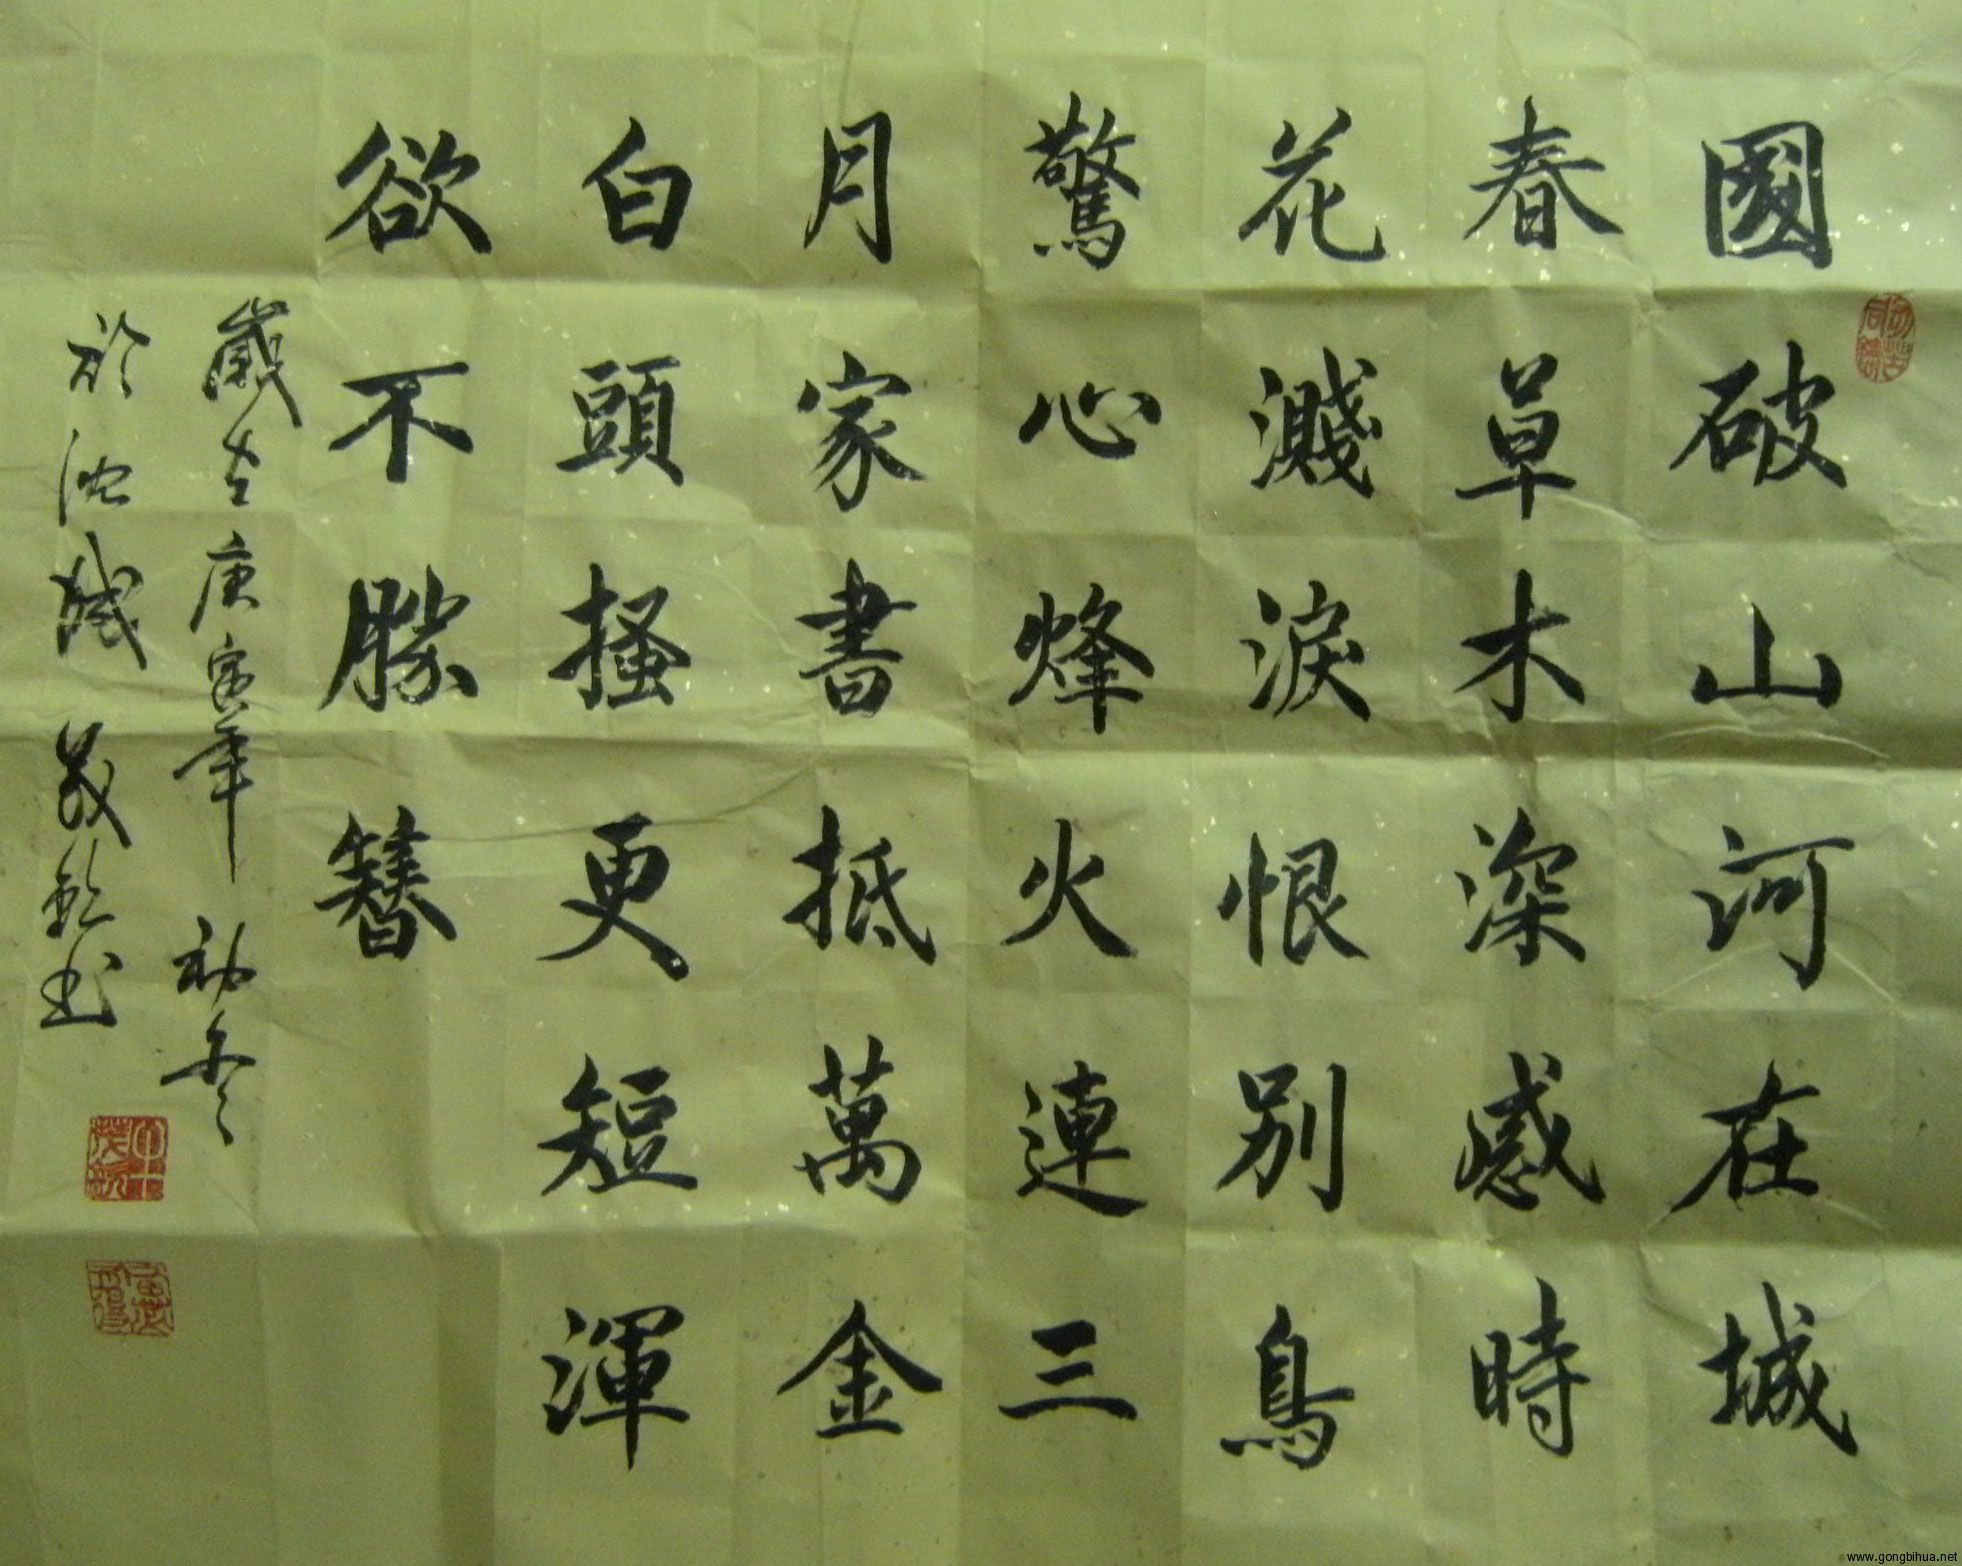 國破山河在城
春草木深感時
花濺淚恨別鳥
驚心烽火連三
月家書抵萬金
白頭搔更短渾
欲不勝簪
歲在庚寅年初冬
於沈城
書
www.gongbihua.net